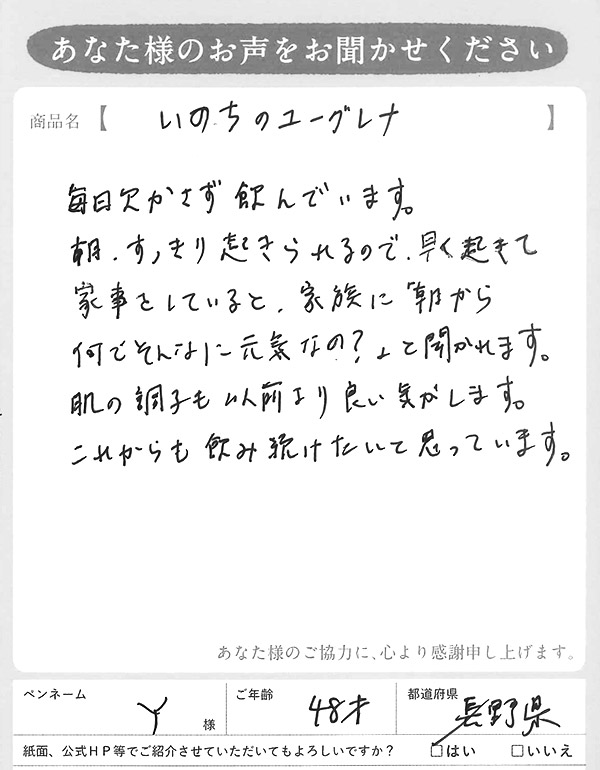 あなた様のお声をお聞かせください
商品名【 いのちのユーグレナ 】
毎日欠かさず飲んでいます。
朝、すっきり起きられるので、早く起きて
家事をしていると、家族に「朝から
何でそんなに元気なの？」と聞かれます。
肌の調子も以前より良い気がします。
これからも飲み続けたいと思っています。
あなた様のご協力に、心より感謝申し上げます。
ペンネーム Y 様 ご年齢 48才 都道府県 長野県
紙面、公式HP等でご紹介させていただいてもよろしいですか？ ☑はい □いいえ